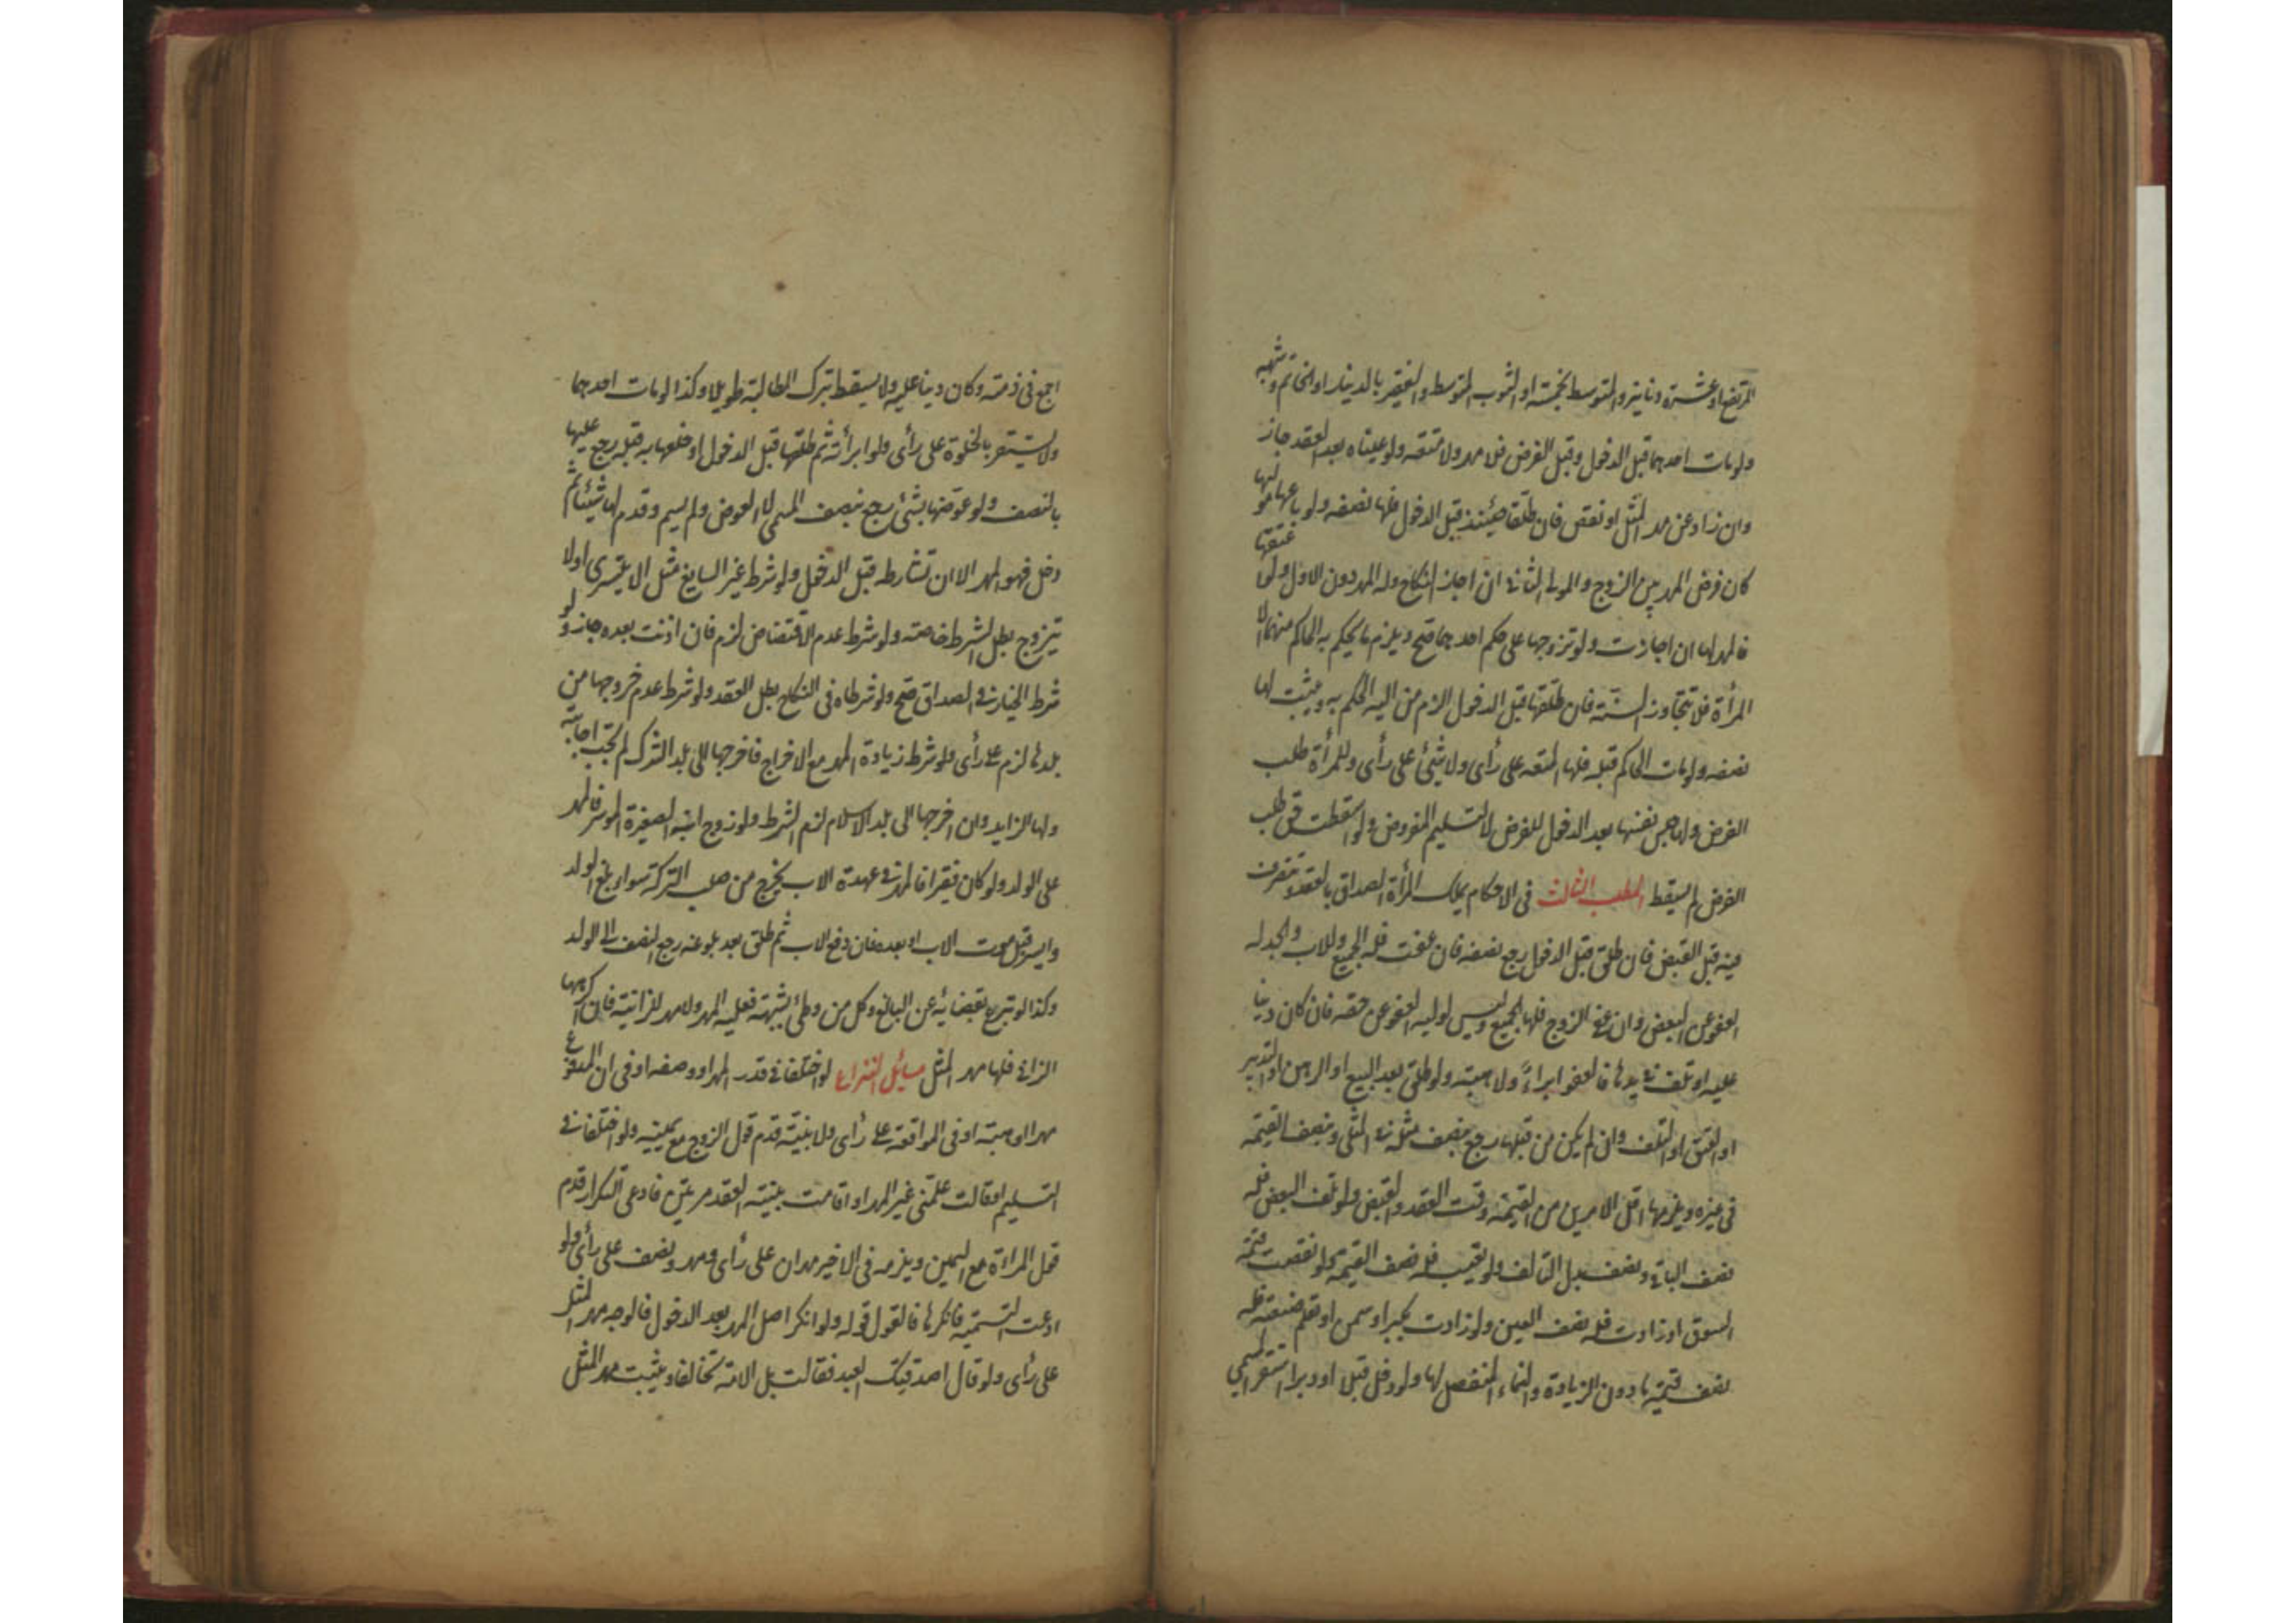 المرتفع او عشرة دنانير والمتوسط بخمسة او الثوب المتوسط والفقير بالدينار او الخاتم وشبهه
ولو مات احدهما قبل الدخول وقبل الفرض فلا مهر ولا متعة ولو عيناه بعد العقد جاز
وان زاد عن مهر المثل او نقص فان طلقها حينئذ قبل الدخول فلها نصفه ولو باعها مولها
كان فرض المهر بين الزوج والمولى الثاني ان اجاز النكاح وله المهر دون الاول ولو اعتقها
فالمهر لها ان اجازت ولو تزوجها على حكم احدهما صح ويلزم ما يحكم به الحاكم منهما الا
المرأة فلا تتجاوز السنة فان طلقها قبل الدخول الزم من اليه الحكم به ويثبت لها
نصفه ولو مات الحاكم قبله فلها المتعة على رأى ولا شئ على رأى وللمرأة طلب
الفرض ولها حبس نفسها بعد الدخول للفرض لا لتسليم المفروض ولو اسقطت حق طلب
الفرض لم يسقط المطلب الثالث فى الاحكام يملك المرأة الصداق بالعقد وتتصرف
فيه قبل القبض فان طلق قبل الدخول رجع نصفه فان عفت فله الجميع وللاب والجد له
العفو عن البعض وان عفى الزوج فلها الجميع وليس لوليه العفو عن حقه فان كان دينا
عليه او تلف فى يدها فالعفو ابراء ولا هبة ولو طلق بعد البيع او الرهن او التدبير
او العتق او التلف وان لم يكن من قبلها رجع بنصف مثله فى المثلى ونصف القيمة
فى غيره ويلزمها اقل الامرين من القيمة وقت العقد والقبض ولو تلف البعض فله
نصف الباقى ونصف بدل التالف ولو تعيب فله نصف القيمة ولو نقصت قيمة
السوق او زادت فله نصف العين ولو زادت بكبر او سمن او تعلم صنعة فله
نصف قيمتها دون الزيادة والنماء المنفصل لها ولو دخل قبلا او دبرا استقر المسمى
اجمع فى ذمته وكان دينا عليه ولا يسقط بترك المطالبة طويلا وكذا لو مات احدهما
ولا يستقر بالخلوة على رأى ولو ابرأته ثم طلقها قبل الدخول او خلعها به قبله رجع عليها
بالنصف ولو عوضها بشئ رجع بنصف المسمى لا العوض ولو لم يسم وقدم لها شيئا ثم
دخل فهو المهر الا ان تشارطه قبل الدخول ولو شرط غير السايغ مثل الا يتسرى اولا
يتزوج بطل الشرط خاصة ولو شرط عدم الاقتضاض لزم فان اذنت بعده جاز ولو
شرط الخيار فى الصداق صح ولو شرطاه فى النكاح بطل العقد ولو شرط عدم خروجها من
بلدها لزم على رأى ولو شرط زيادة المهر مع الاخراج فاخرجها الى بلد الشرك لم تجب اجابته
ولها الزايد وان اخرجها الى بلد الاسلام لزم الشرط ولو زوج ابنه الصغيرة الموسر فالمهر
على الولد ولو كان فقيرا فالمهر فى عهدة الاب يخرج من صلب التركة سواء بلغ الولد
وايسر قبل موت الاب او بعده فان دفع الاب ثم طلق بعد بلوغه رجع النصف الى الولد
وكذا لو تبرع بقضائه عن البالغ وكل من وطئ بشبهة فعليه المهر ولا مهر للزانية فان اكرهها
الزانى فلها مهر المثل مسائل النزاع لو اختلفا فى قدر المهر او وصفه او فى ان المدفوع
مهر او هبة او فى المواقعة على رأى ولا بينة قدم قول الزوج مع يمينه ولو اختلفا فى
التسليم او قالت علمتنى غير المهر او اقامت بينة العقد مرتين فادعى التكرار قدم
قول المرأة مع اليمين ويلزمه فى الاخير مهران على رأى ومهر ونصف على رأى ولو
ادعت التسمية فانكرها فالقول قوله ولو انكر اصل المهر بعد الدخول فالوجه مهر المثل
على رأى ولو قال اصدقتك العبد فقالت بل الامة تحالفا ويثبت مهر المثل